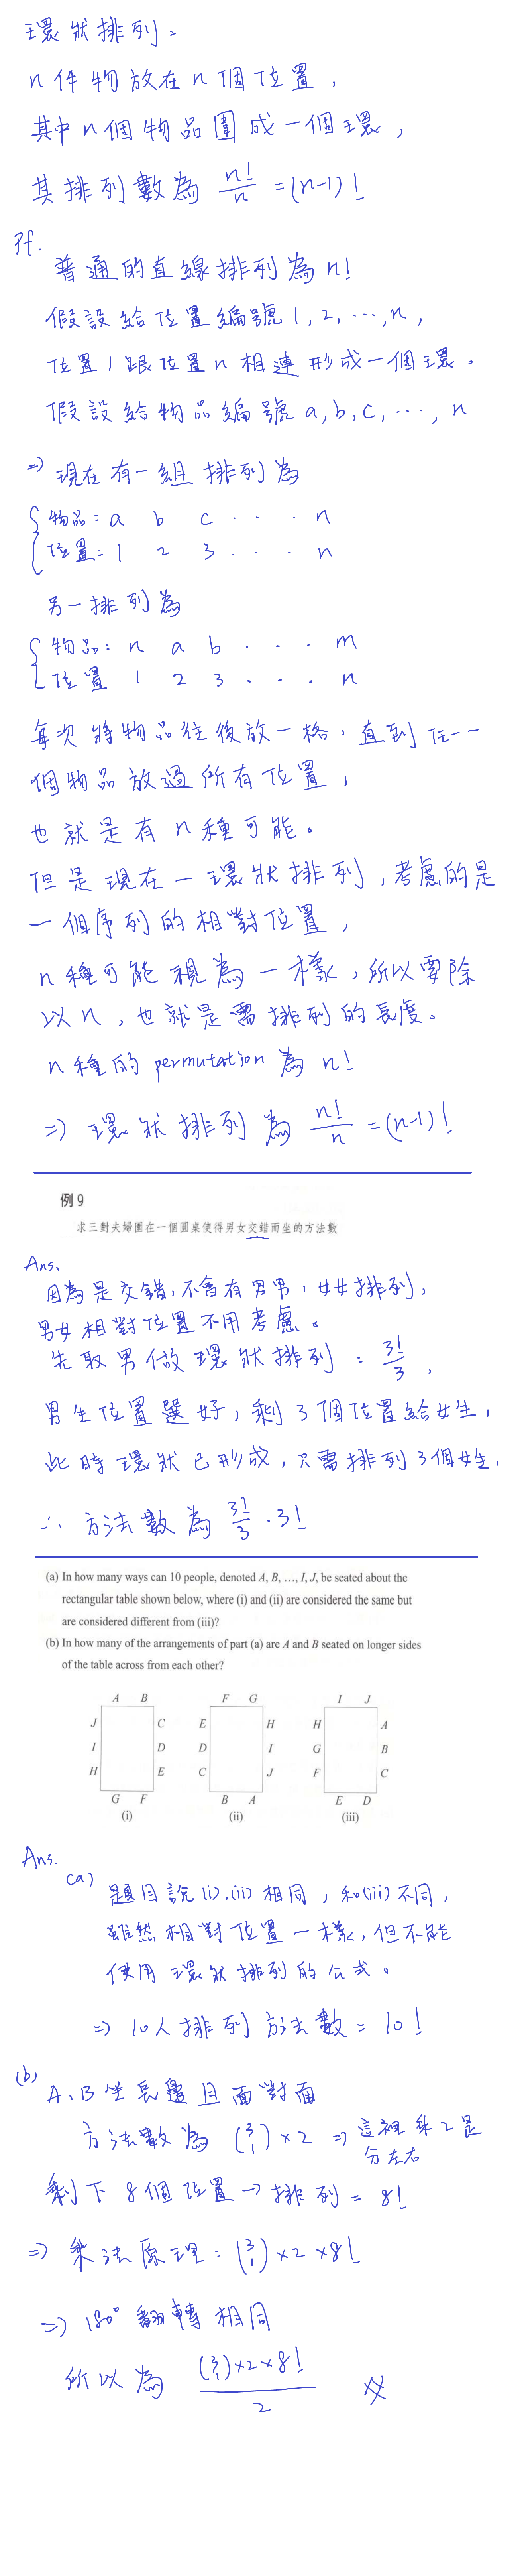 環狀排列:
n 件物放在 n 個位置,
其中 n 個物品圍成一個環,
其排列數為 n!/n = (n-1)!
Pf.
普通的直線排列為 n!
假設給位置編號 1, 2, ..., n,
位置 1 跟位置 n 相連形成一個環。
假設給物品編號 a, b, c, ..., n
=> 現在有一組排列為
物品: a b c . . . n
位置: 1 2 3 . . . n
另一排列為
物品: n a b . . . m
位置 1 2 3 . . . n
每次將物品往後放一格,直到任一
個物品放過所有位置,
也就是有 n 種可能。
但是現在一環狀排列,考慮的是
一個序列的相對位置,
n 種可能視為一樣,所以要除
以 n,也就是需排列的長度。
n 種的 permutation 為 n!
=> 環狀排列為 n!/n = (n-1)!
例 9
求三對夫婦圍在一個圓桌使得男女交錯而坐的方法數
Ans.
因為是交錯,不會有男男,女女排列,
男女相對位置不用考慮。
先取男做環狀排列: 3!/3,
男生位置選好,剩 3 個位置給女生,
此時環狀已形成,只需排列 3 個女生,
∴ 方法數為 3!/3 · 3!
(a) In how many ways can 10 people, denoted A, B, ..., I, J, be seated about the
rectangular table shown below, where (i) and (ii) are considered the same but
are considered different from (iii)?
(b) In how many of the arrangements of part (a) are A and B seated on longer sides
of the table across from each other?
A B F G I J
J C E H H A
I D D I G B
H E C J F C
G F B A E D
(i) (ii) (iii)
Ans.
(a)
題目說 (i), (ii) 相同,和 (iii) 不同,
雖然相對位置一樣,但不能
使用環狀排列的公式。
=> 10 人排列方法數 = 10!
(b)
A、B 坐長邊且面對面
方法數為 (3 1) × 2 => 這裡乘 2 是
分左右
剩下 8 個位置 → 排列 = 8!
=> 乘法原理: (3 1) × 2 × 8!
=> 180° 翻轉相同
所以為 (3 1) × 2 × 8! / 2